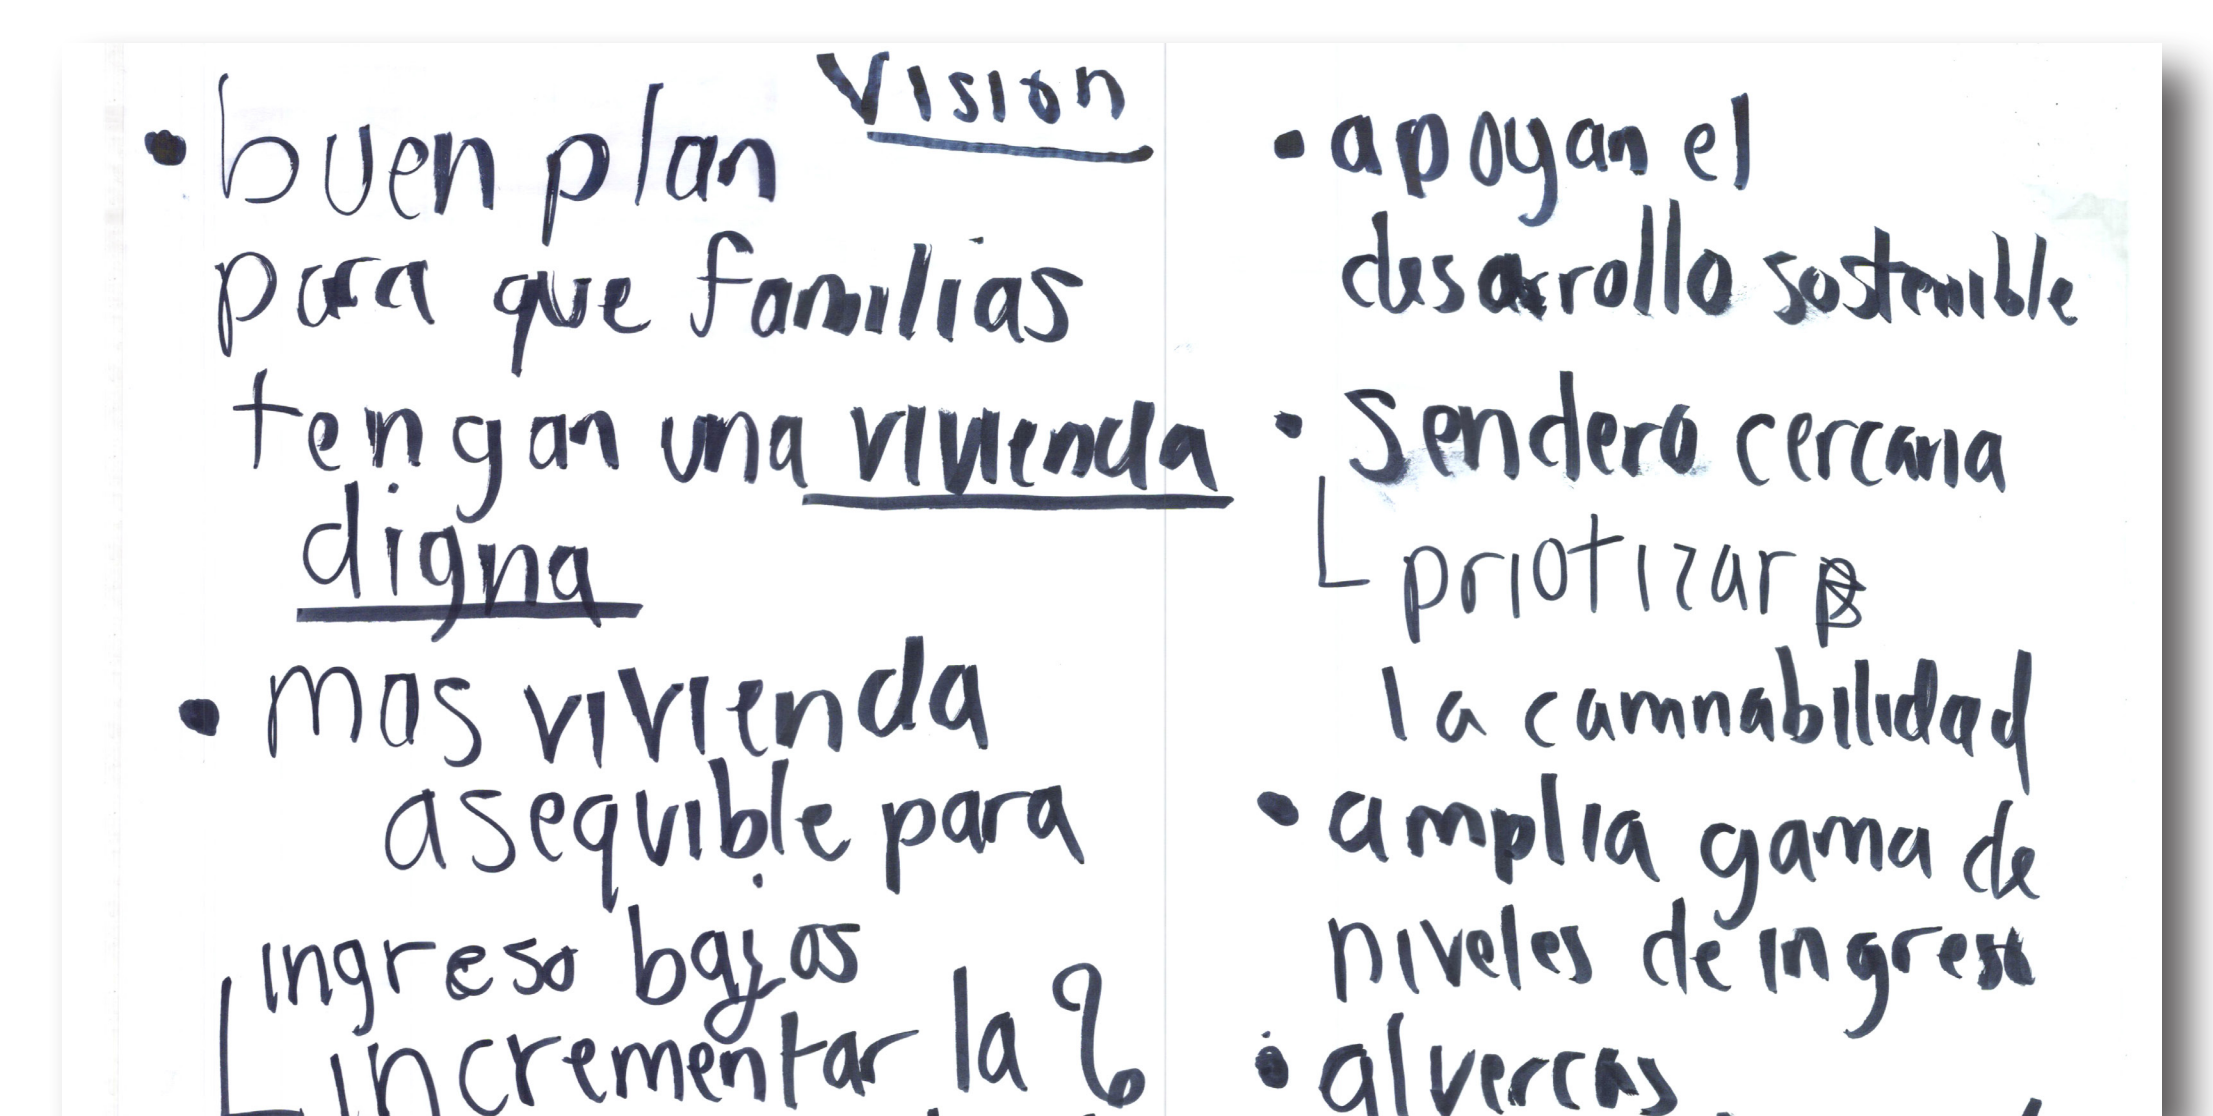 Visión
• buen plan
para que familias
tengan una vivienda
digna
• mas vivienda
asequible para
ingreso bajos
incrementar la %
• apoyan el
desarrollo sostenible
• Sendero cercana
priotizar
la camnabilidad
• amplia gama de
niveles de ingreso
• alvercas